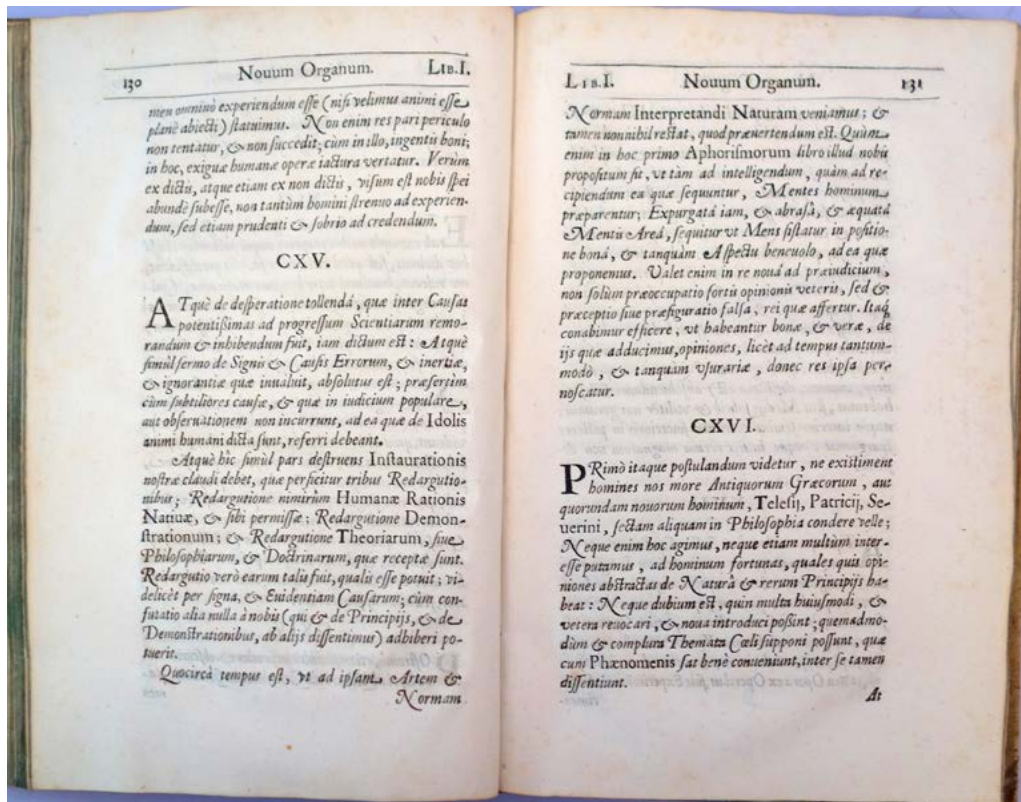 130 Nouum Organum. LIB.I.
men omninò experiendum esse (nisi velimus animi esse
planè abiecti) statuimus. Non enim res pari periculo
non tentatur, & non succedit; cùm in illo, ingentis boni;
in hoc, exiguæ humanæ operæ iactura vertatur. Verùm
ex dictis, atque etiam ex non dictis, visum est nobis spei
abundè subesse, non tantùm homini strenuo ad experien-
dum, sed etiam prudenti & sobrio ad credendum.
CXV.
ATquè de desperatione tollendâ, quæ inter Causas
potentißimas ad progressum Scientiarum remo-
randum & inhibendum fuit, iam dictum est: Atquè
simùl sermo de Signis & Causis Errorum, & inertiæ,
& ignorantiæ quæ inualuit, absolutus est; præsertim
cùm subtiliores causæ, & quæ in iudicium populare,
aut obseruationem non incurrunt, ad ea quæ de Idolis
animi humani dicta sunt, referri debeant.
Atquè hîc simùl pars destruens Instaurationis
nostræ claudi debet, quæ perficitur tribus Redargutio-
nibus; Redargutione nimirùm Humanæ Rationis
Natiuæ, & sibi permissæ; Redargutione Demon-
strationum; & Redargutione Theoriarum, siue
Philosophiarum, & Doctrinarum, quæ receptæ sunt.
Redargutio verò earum talis fuit, qualis esse potuit; vi-
delicèt per signa, & Euidentiam Causarum; cùm con-
futatio alia nulla à nobis (qui & de Principijs, & de
Demonstrationibus, ab alijs dissentimus) adhiberi po-
tuerit.
Quocircà tempus est, vt ad ipsam Artem &
Normam
LIB.I. Nouum Organum. 131
Normam Interpretandi Naturam veniamus; &
tamen nonnihil restat, quod præuertendum est. Quùm
enim in hoc primo Aphorismorum libro illud nobis
propositum sit, vt tàm ad intelligendum, quàm ad re-
cipiendum ea quæ sequuntur, Mentes hominum
præparentur; Expurgatâ iam, & abrasâ, & æquatâ
Mentis Areâ, sequitur vt Mens sistatur in positio-
ne bonâ, & tanquàm Aspectu beneuolo, ad ea quæ
proponemus. Valet enim in re nouâ ad præiudicium,
non solùm præoccupatio fortis opinionis veteris, sed &
præceptio siue præfiguratio falsa, rei quæ affertur. Itaq
conabimur efficere, vt habeantur bonæ, & veræ, de
ijs quæ adducimus, opiniones, licèt ad tempus tantum-
modò, & tanquàm vsurariæ, donec res ipsa per-
noscatur.
CXVI.
PRimò itaque postulandum videtur, ne existiment
homines nos more Antiquorum Græcorum, aut
quorundam nouorum hominum, Telesij, Patricij, Se-
uerini, sectam aliquam in Philosophia condere velle;
Neque enim hoc agimus, neque etiam multùm inter-
esse putamus, ad hominum fortunas, quales quis opi-
niones abstractas de Naturâ & rerum Principijs ha-
beat: Neque dubium est, quin multa huiusmodi, &
vetera reuocari, & noua introduci possint; quemadmo-
dùm & complura Themata Cœli supponi possunt, quæ
cum Phænomenis sat benè conueniunt, inter se tamen
dissentiunt.
At